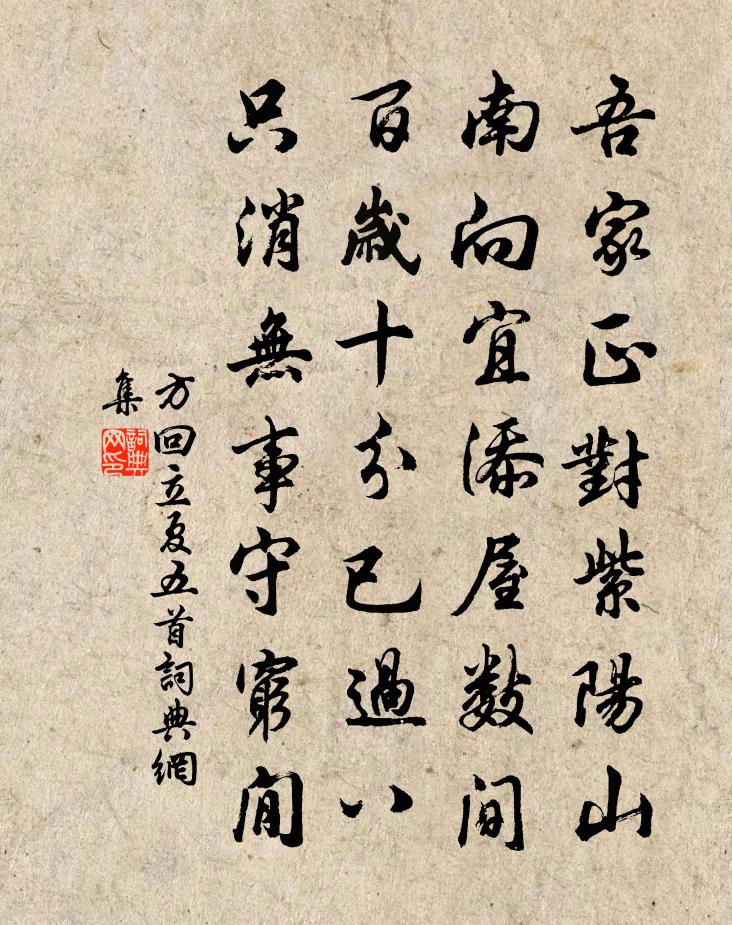 吾家正對紫陽山
南向宜添屋數間
百歲十分已過八
只消無事守窮閒
方回立夏五首詞典網
集
詞典
网印